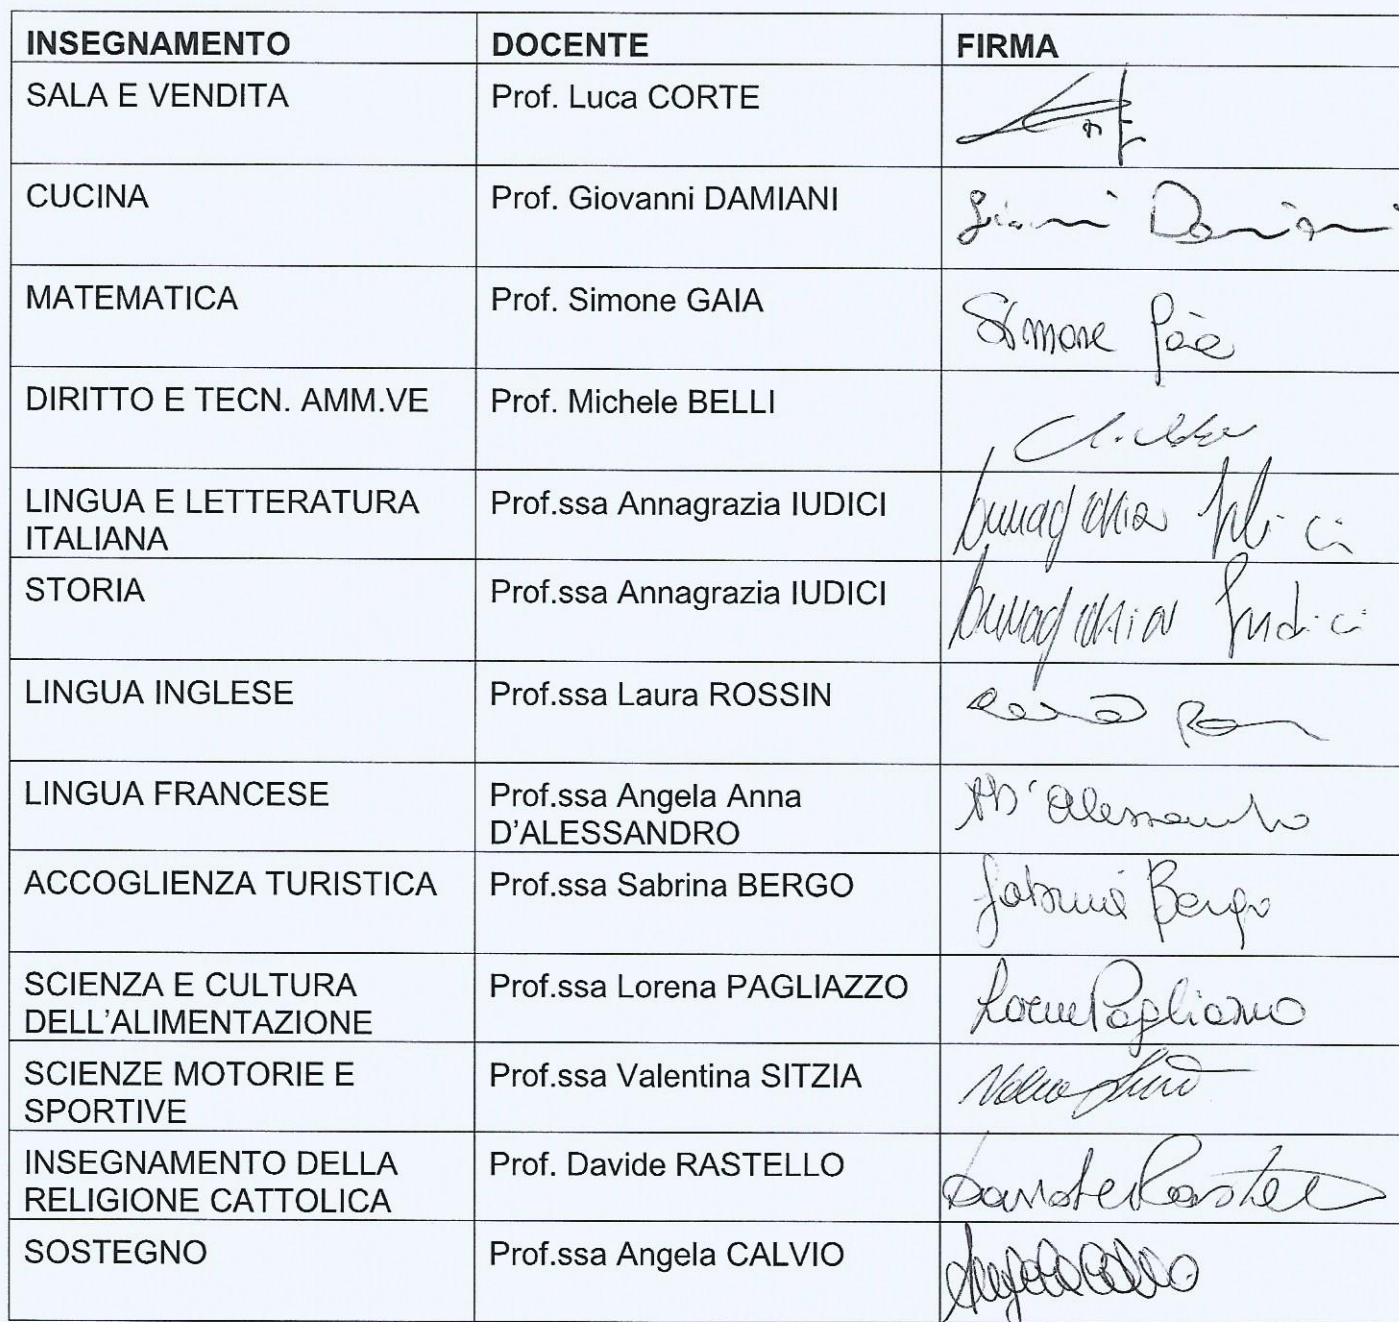 INSEGNAMENTO DOCENTE FIRMA
SALA E VENDITA Prof. Luca CORTE
CUCINA Prof. Giovanni DAMIANI Gianni Damiani
MATEMATICA Prof. Simone GAIA Simone Gaia
DIRITTO E TECN. AMM.VE Prof. Michele BELLI
LINGUA E LETTERATURA Prof.ssa Annagrazia IUDICI Annagrazia Iudici
ITALIANA
STORIA Prof.ssa Annagrazia IUDICI Annagrazia Iudici
LINGUA INGLESE Prof.ssa Laura ROSSIN
LINGUA FRANCESE Prof.ssa Angela Anna D'Alessandro
D'ALESSANDRO
ACCOGLIENZA TURISTICA Prof.ssa Sabrina BERGO Sabrina Bergo
SCIENZA E CULTURA Prof.ssa Lorena PAGLIAZZO Lorena Pagliazzo
DELL'ALIMENTAZIONE
SCIENZE MOTORIE E Prof.ssa Valentina SITZIA
SPORTIVE
INSEGNAMENTO DELLA Prof. Davide RASTELLO Davide Rastello
RELIGIONE CATTOLICA
SOSTEGNO Prof.ssa Angela CALVIO Angela Calvio